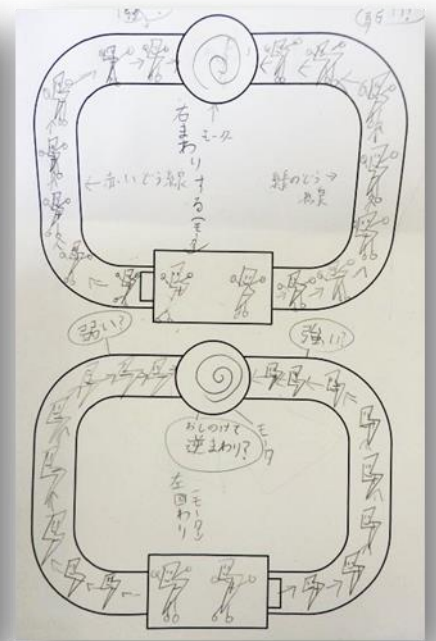 モータ
右まわりする(モータ)
←赤いどう線
緑のどう→
線
弱い?
強い?
おしのけて
逆まわり?
モータ
(モータ)
左回わり